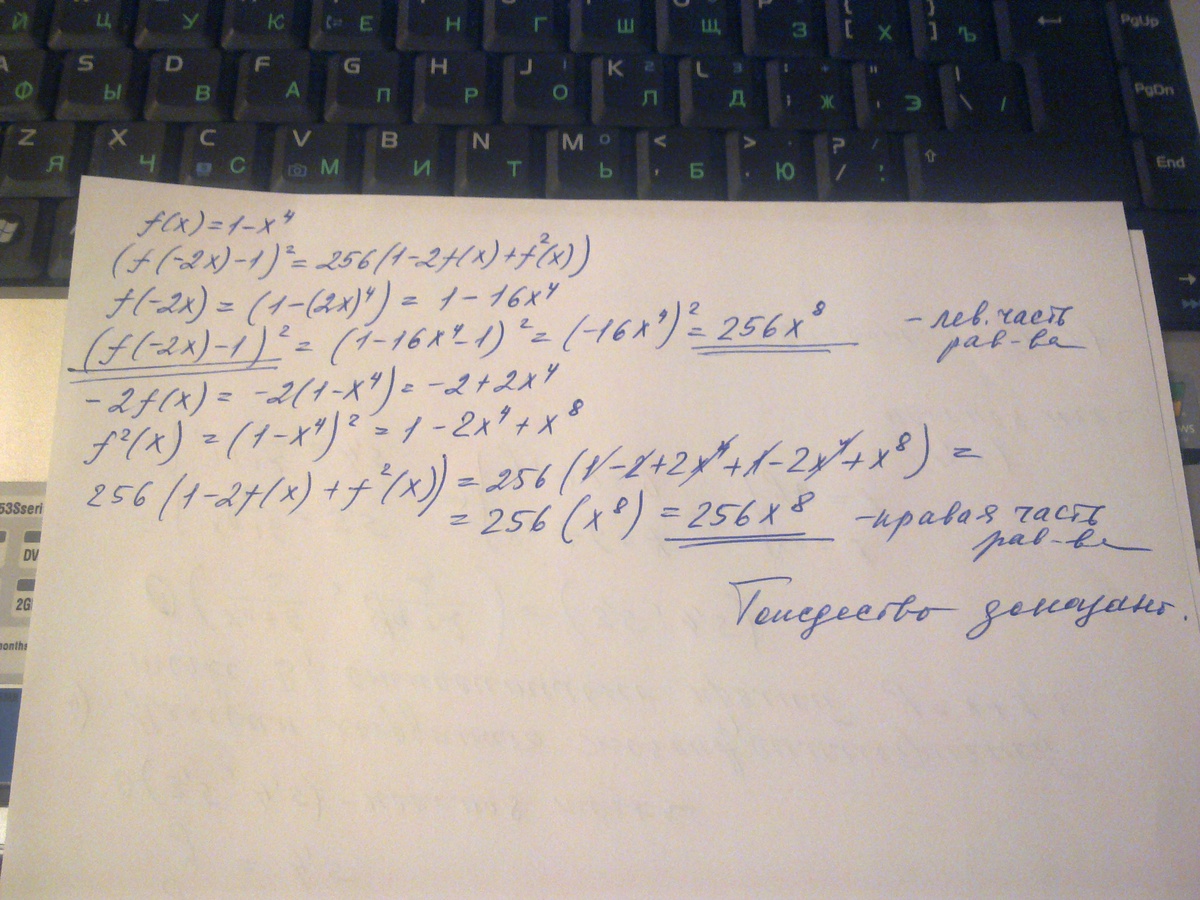 Й Ц У К Е Н Г Ш Щ З [ Х ] Ъ PgUp
S D F G H J K 2 L 3 : " | PgDn
Ф Ы В А П Р О Л Д ; Ж ' Э \ /
Z X C V B N M < > ? / End
Я Ч С М И Т Ь , Б . Ю /
f(x)=1-x⁴
(f(-2x)-1)²=256(1-2f(x)+f²(x))
f(-2x) = (1-(2x)⁴) = 1-16x⁴
(f(-2x)-1)² = (1-16x⁴-1)² = (-16x⁴)² = 256x⁸ - лев. часть
рав-ва
-2f(x) = -2(1-x⁴) = -2+2x⁴
f²(x) = (1-x⁴)² = 1-2x⁴+x⁸
256(1-2f(x)+f²(x)) = 256(1-2+2x⁴+1-2x⁴+x⁸) =
= 256(x⁸) = 256x⁸ - правая часть
рав-ва
Тождество доказано.